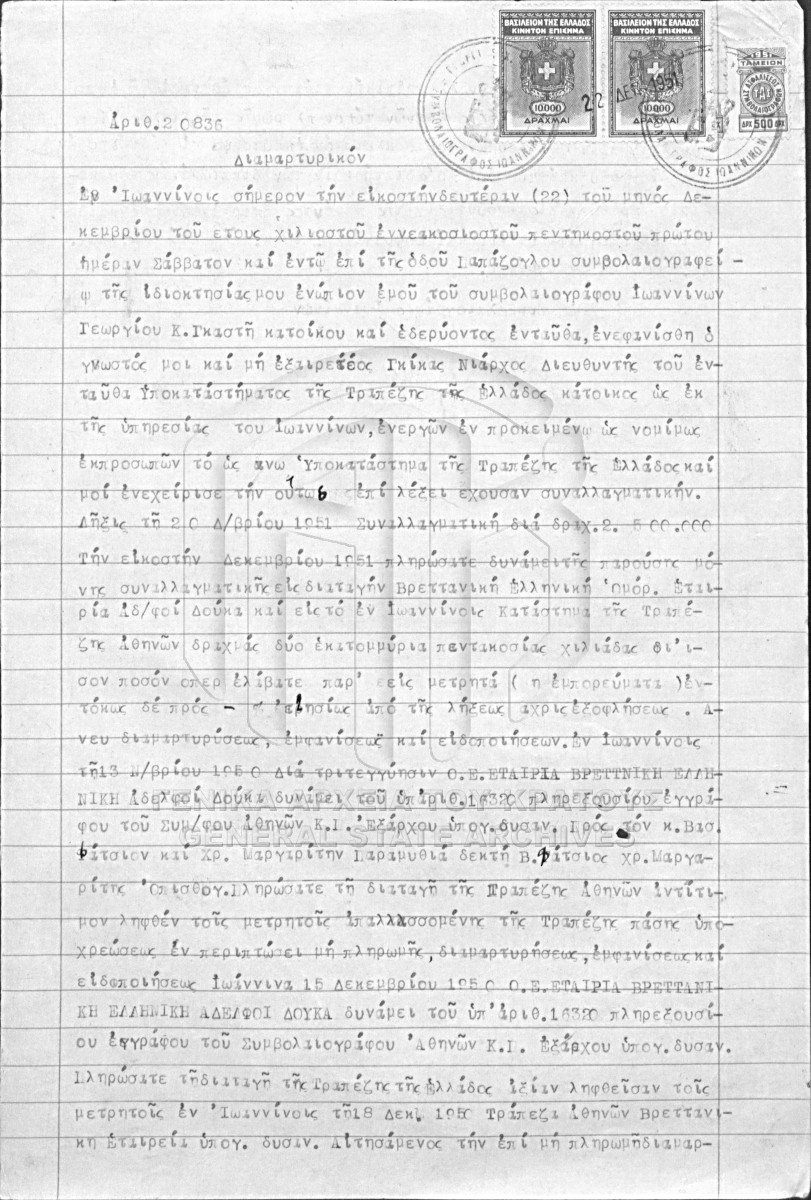 ΒΑΣΙΛΕΙΟΝ ΤΗΣ ΕΛΛΑΔΟΣ
ΚΙΝΗΤΟΝ ΕΠΙΣΗΜΑ
10.000
ΔΡΑΧΜΑΙ
ΒΑΣΙΛΕΙΟΝ ΤΗΣ ΕΛΛΑΔΟΣ
ΚΙΝΗΤΟΝ ΕΠΙΣΗΜΑ
10.000
ΔΡΑΧΜΑΙ
22 ΔΕΚ. 1951
ΤΑΜΕΙΟΝ
ΔΡΧ 500 ΔΡΧ
Ἀριθ.20836
Διαμαρτυρικόν
Ἐν Ἰωαννίνοις σήμερον τήν εἰκοστήνδευτέραν (22) τοῦ μηνός Δε-
κεμβρίου τοῦ ετους χιλιοστοῦ ἐννεακοσιοστοῦ πεντηκοστοῦ πρώτου
ἡμέραν Σάββατον καί ἐντῷ ἐπί τῆς ὁδοῦ Σαπάζογλου συμβολαιογραφεί -
ῳ τῆς ἰδιοκτησίας μου ἐνώπιον ἐμοῦ τοῦ συμβολαιογράφου Ἰωαννίνων
Γεωργίου Κ.Γκαστῆ κατοίκου καί ἑδερύοντος ἐνταῦθα,ἐνεφανίσθη ὁ
γνωστός μοι καί μή ἐξαιρετέος Γκίκας Νιάρχος Διευθυντής τοῦ ἐν-
ταῦθα Ὑποκαταστήματος τῆς Τραπέζης τῆς Ἑλλάδος κάτοικος ὡς ἐκ
τῆς ὑπηρεσίας του Ἰωαννίνων,ἐνεργῶν ἐν προκειμένῳ ὡς νομίμως
ἐκπροσωπῶν τό ὡς ανω Ὑποκατάστημα τῆς Τραπέζης τῆς Ἑλλάδος καί
μοί ἐνεχείρισε τήν οὕτως ἐπί λέξει ἐχουσαν συναλλαγματικήν.
Λῆξις τῇ 20 Δ/βρίου 1951 Συναλλαγματική διά δραχ.2. 500.000
Τήν εἰκοστήν Δεκεμβρίου 1951 πληρώσατε δυνάμει τῆς παρούσης μό-
νης συναλλαγματικῆς εἰς διαταγήν Βρεττανική Ἑλληνική Ὁμόρ. Ἑται-
ρία Ἀδ/φοί Δούκα καί εἰς τό ἐν Ἰωαννίνοις Κατάστημα τῆς Τραπέ-
ζης Ἀθηνῶν δραχμάς δύο ἑκατομμύρια πεντακοσίας χιλιάδας δι'ι-
σον ποσόν οπερ ἐλάβατε παρ' εεῖς μετρητά ( η ἐμπορεύματα )ἐν-
τόκως δέ πρός - ἐτησίως ἀπό τῆς λήξεως αχρις ἐξοφλήσεως . Α-
νευ διαμαρτυρύσεως, ἐμφανίσεως καί εἰδοποιήσεων.Ἐν Ἰωαννίνοις
τῇ13 Ν/βρίου 1950 Διά τριτεγγύησιν Ο.Ε.ΕΤΑΙΡΙΑ ΒΡΕΤΤΝΙΚΗ ΕΛΛΗ-
ΝΙΚΗ Ἀδελφοί Δούκα δυνάμει τοῦ ὑπ'ἀριθ.16320 πληρεξουσίου ἐγγρά-
φου τοῦ Συμ/φου Ἀθηνῶν Κ.Ι. Ἐξάρχου ὑπογ.δυσαν. Πρός τόν κ.Βασ.
Φάτσιον καί Χρ. Μαργαρίτην Παραμυθιά δεκτή Β.Φάτσιος χρ.Μαργα-
ρίτης Ὀπισθογ.Πληρώσατε τῇ διαταγῇ τῆς Τραπέζης Ἀθηνῶν ἀντίτι-
μον ληφθέν τοῖς μετρητοῖς ἀπαλλασσομένης τῆς Τραπέζης πάσης ὑπο-
χρεώσεως ἐν περιπτώσει μή πληρωμῆς,διαμαρτυρήσεως,ἐμφανίσεως καί
εἰδοποιήσεως Ἰωάννινα 15 Δεκεμβρίου 1950 Ο.Ε.ΕΤΑΙΡΙΑ ΒΡΕΤΤΑΝΙ-
ΚΗ ΕΛΛΗΝΙΚΗ ΑΔΕΛΦΟΙ ΔΟΥΚΑ δυνάμει τοῦ ὑπ'ἀριθ.16320 πληρεξουσί-
ου ἐγγράφου τοῦ Συμβολαιογράφου Ἀθηνῶν Κ.Ι. Ἐξάρχου ὑπογ.δυσαν.
Πληρώσατε τῇδιαταγῇ τῆς Τραπέζης τῆς Ἑλλάδος ἀξίαν ληφθεῖσαν τοῖς
μετρητοῖς ἐν Ἰωαννίνοις τῇ18 Δεκ. 1950 Τράπεζα Ἀθηνῶν Βρεττανι-
κη Ἑταιρεία ὑπογ. δυσαν. Αἰτησάμενος τήν ἐπί μή πληρωμῇδιαμαρ-
ΓΕΝΙΚΑ ΑΡΧΕΙΑ ΤΟΥ ΚΡΑΤΟΥΣ
GENERAL STATE ARCHIVES